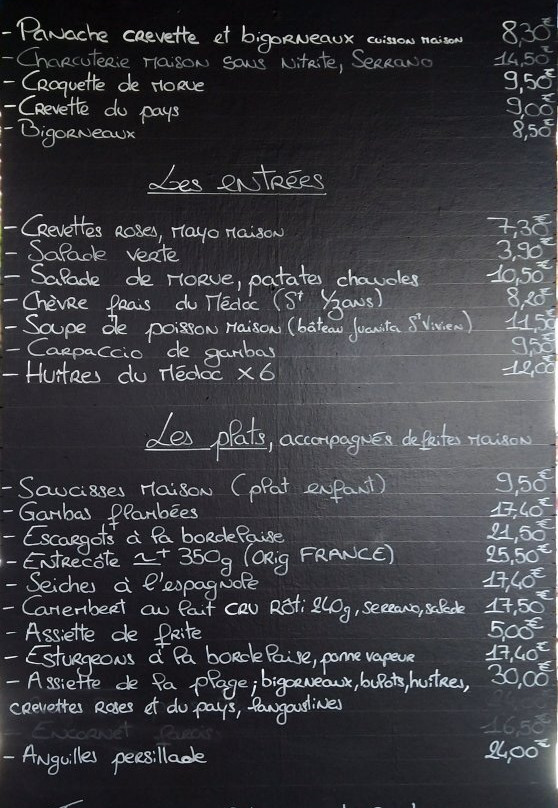 - Panache crevette et bigorneaux cuisson maison 8,30€
- Charcuterie maison sans nitrite, Serrano 14,50€
- Croquette de morue 9,50€
- Crevette du pays 9,00€
- Bigorneaux 8,50€
Les entrées
- Crevettes roses, mayo maison 7,30€
- Salade verte 3,90€
- Salade de morue, patates chaudes 10,50€
- Chèvre frais du Médoc (St Yzans) 8,20€
- Soupe de poisson maison (bâteau Juanita St Vivien) 11,5€
- Carpaccio de gambas 9,50€
- Huîtres du Médoc x6 12,00
Les plats, accompagnés de frites maison
- Saucisses maison (plat enfant) 9,50€
- Gambas flambées 17,40€
- Escargots à la bordelaise 21,50€
- Entrecôte ~+ 350g (Orig FRANCE) 25,50€
- Seiches à l'espagnole 17,40€
- Camembert au lait cru Rôti 240g, serrano, salade 17,50€
- Assiette de frite 5,00€
- Esturgeons à la bordelaise, pomme vapeur 17,40€
- Assiette de la plage; bigorneaux, bulots, huîtres, 30,00€
crevettes roses et du pays, langoustines
- Encornet 16,50
- Anguilles persillade 24,00€